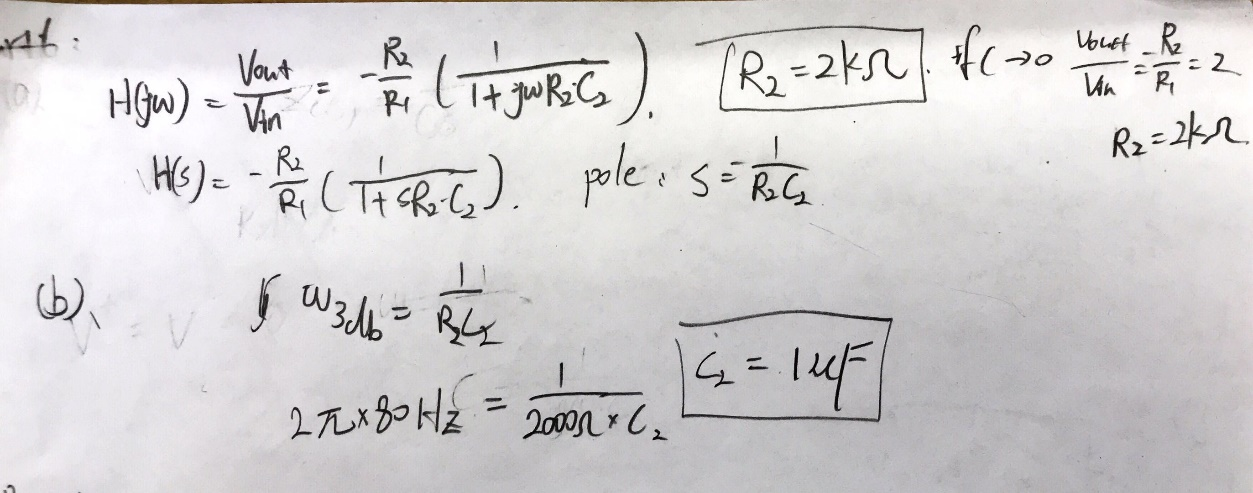 H(jw) = Vout/Vin = -R2/R1 ( 1/(1+jwR2·C2) ). R2 = 2kΩ. If C→0 Vout/Vin = -R2/R1 = 2
R2 = 2kΩ.
H(s) = -R2/R1 ( 1/(1+sR2·C2) ). pole: s = -1/(R2C2)
(b)、 w3db = 1/(R2C2)
2π×80Hz = 1/(2000Ω×C2) C2 = 1uF